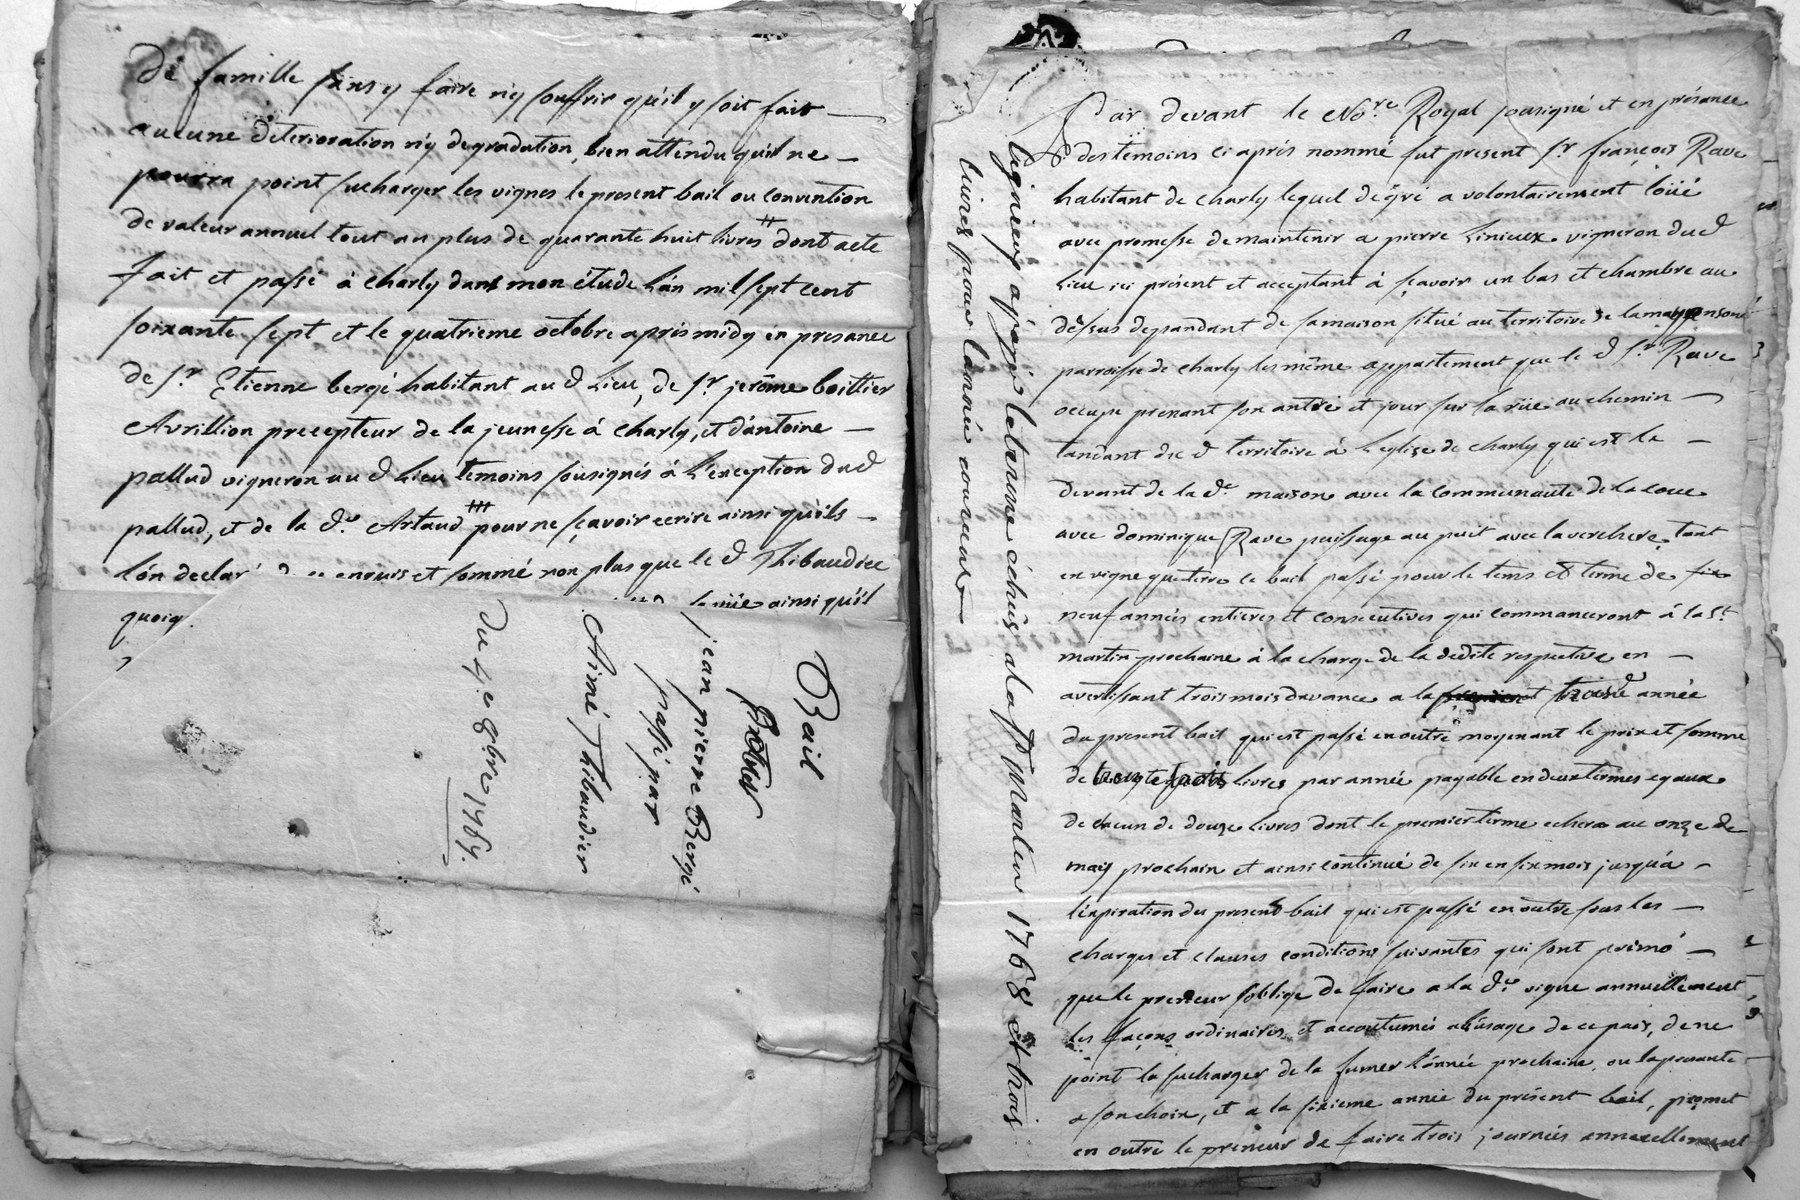 De famille sans y faire n'y souffrir qu'il y soit fait
aucune deterioration n'y degradation, bien attendu qu'il ne
pourra point surcharger les vignes le present bail ou convention
de valeur annuel tout au plus de quarante huit livres dont acte
fait et passé à charly dans mon étude l'an mil sept cent
soixante sept et le quatrieme octobre aprés midy en presance
de Sr. Etienne bergé habitant au d lieu, de Sr. jerôme boittier
Avrillion precepteur de la jeunesse à charly, et d'antoine
pallud vigneron au d lieu temoins sousignés à l'exception dud
pallud, et de la de. Artaud pour ne sçavoir ecrire ainsi qu'ils
l'on declaré enquis et sommé non plus que le d Thibaudier
ainsi qu'il
quoiq
Bail
jean pierre Bergé
passé par
Aimé Thibaudier
Du 4e 8bre 1767.
Par devant le Nore. Royal sousigné et en présance
des temoins ci aprés nommé fut present Sr. françois Rave
habitant de charly lequel de gré a volontairement loüé
avec promesse de maintenir a pierre vigneron dud
lieu ici présent et acceptant à sçavoir un bas et chambre au
dessus dependant de sa maison situé au territoire de
parroisse de charly les même appartement que le d Sr. Rave
occupe prenant son antrée et jour sur la rüe au chemin
tandant du d territoire à l'eglise de charly qui est le
devant de la de. maison avec la communauté de la cour
avec dominique Rave puisage au puit avec la verchere tant
en vigne que terre ce bail passé pour le tems et terme de six
neuf années entieres et consecutives qui commanceront à la St.
martin prochaine à la charge de la dedite respective en
avertissant trois mois d'avance a la année
du present bail qui est passé en outre moyenant le prix et somme
de livres par année payable en deux termes egaux
de chacun de douze livres dont le premier terme echera au onze de
may prochain et ainsi continué de six en six mois jusqu'à
l'expiration du present bail qui est passé en outre sous les
charges et clauses conditions suivantes qui sont primo
que le preneur s'oblige de faire a la de. vigne annuellement
les façons ordinaires et accoutumés a l'usage de ce pais, de ne
point la surcharger de la fumer l'année prochaine, ou la presante
a son choix, et a la sixieme année du présent bail, promet
en outre le preneur de faire trois journées annuellement
a payé le terme échus a la St Martin 1768 et trois
livres pour l'année courante